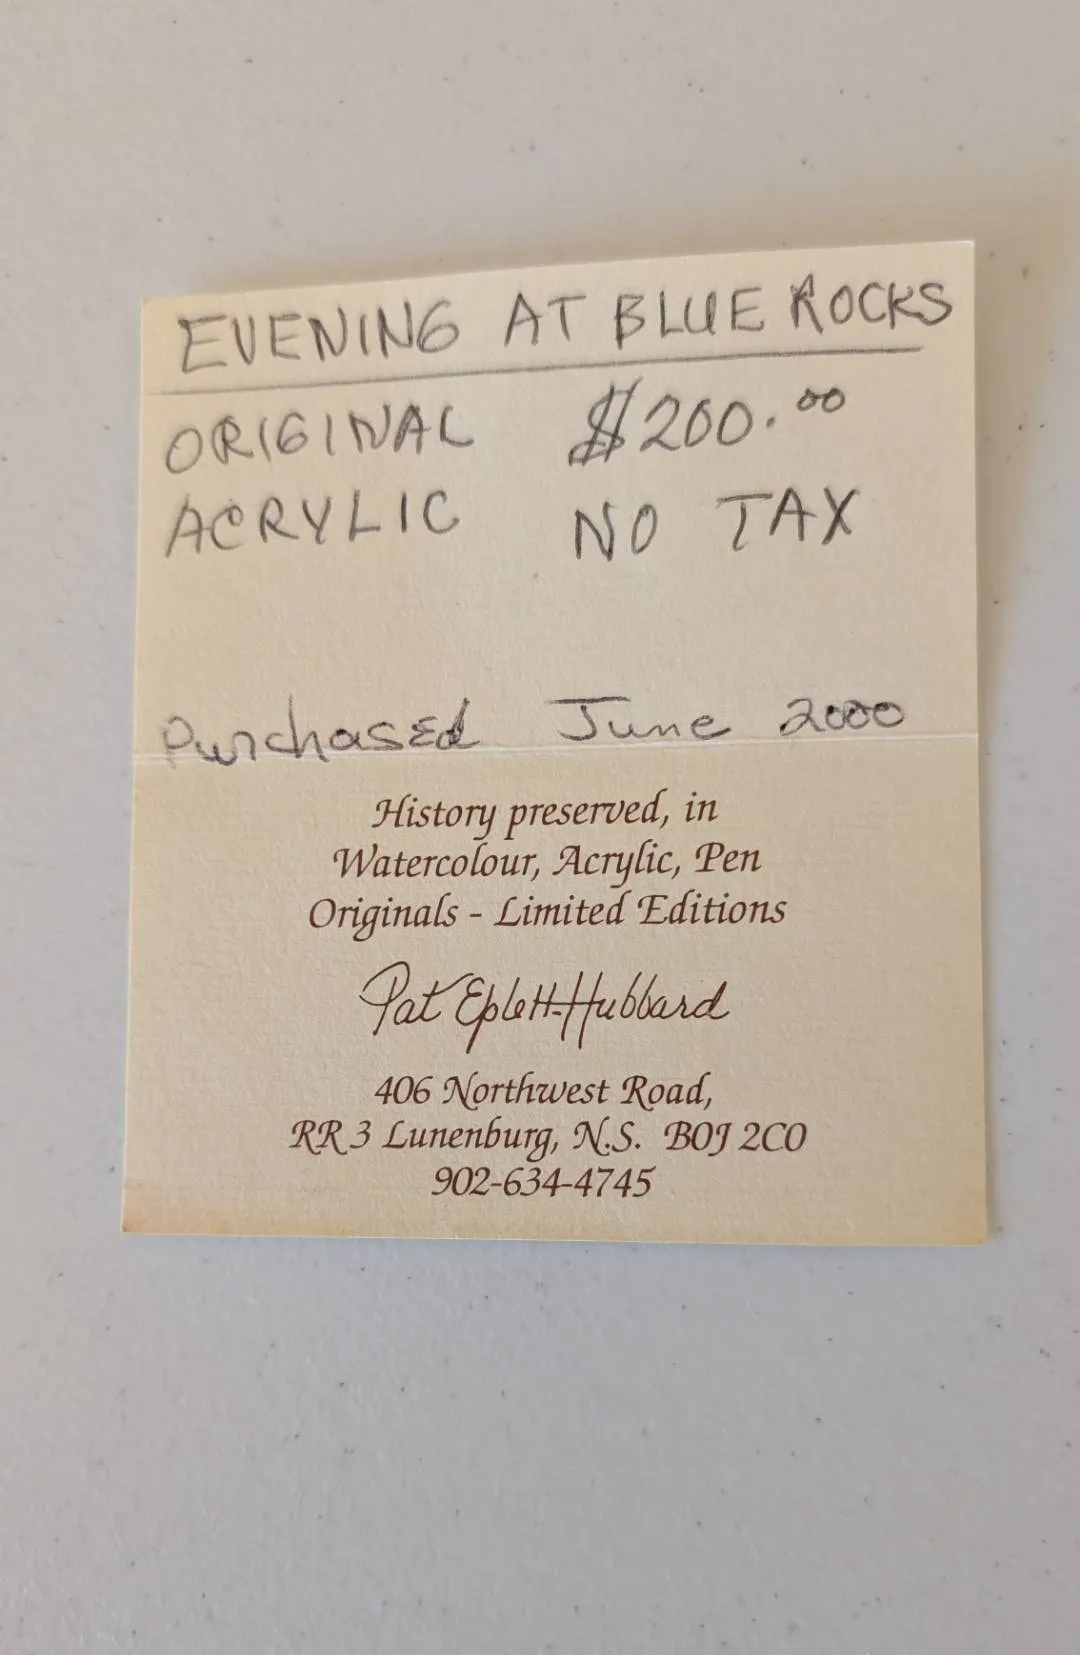 EVENING AT BLUE ROCKS
ORIGINAL $200.00
ACRYLIC NO TAX
Purchased June 2000
History preserved, in
Watercolour, Acrylic, Pen
Originals - Limited Editions
Pat Eplett-Hubbard
406 Northwest Road,
RR 3 Lunenburg, N.S. BOJ 2CO
902-634-4745